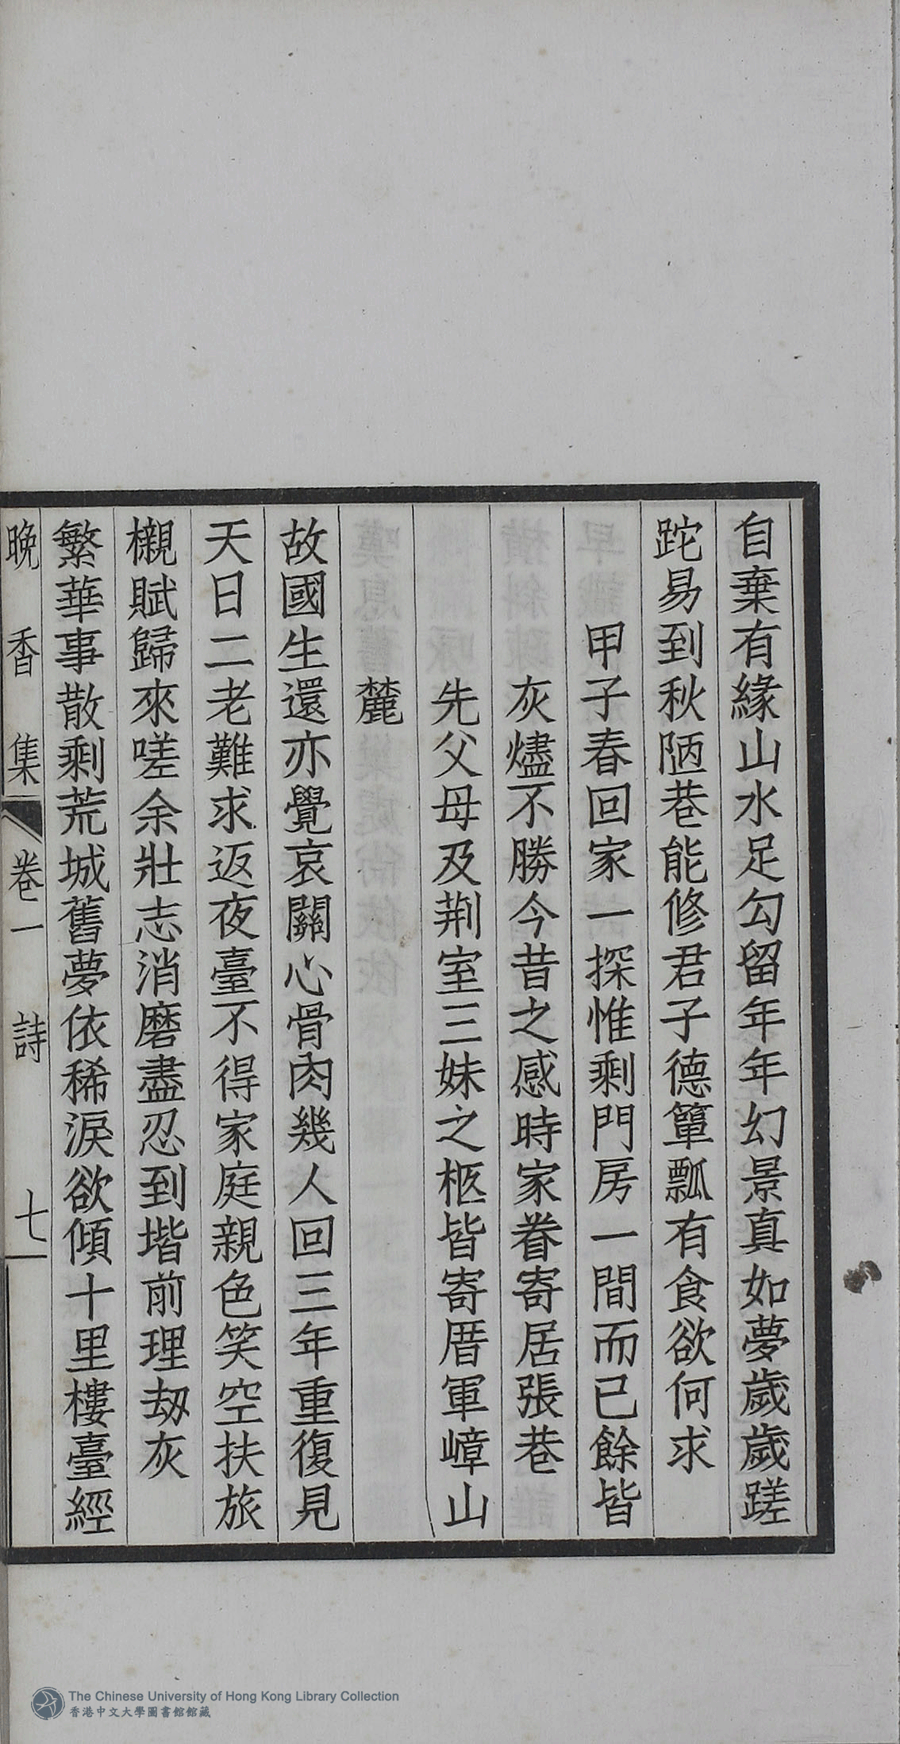 自棄有緣山水足勾留年年幻景真如夢歲歲蹉
跎易到秋陋巷能修君子德簞瓢有食欲何求
甲子春回家一探惟剩門房一間而已餘皆
灰燼不勝今昔之感時家眷寄居張巷
先父母及荆室三妹之柩皆寄厝軍嶂山
麓
故國生還亦覺哀關心骨肉幾人回三年重復見
天日二老難求返夜臺不得家庭親色笑空扶旅
櫬賦歸來嗟余壯志消磨盡忍到堦前理刼灰
繁華事散剩荒城舊夢依稀淚欲傾十里樓臺經
晚香集 卷一 詩 七
The Chinese University of Hong Kong Library Collection
香港中文大學圖書館館藏